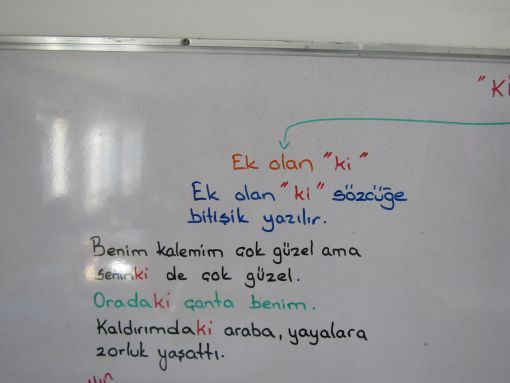 "Ki
Ek olan "ki"
Ek olan "ki" sözcüğe
bitişik yazılır.
Benim kalemim çok güzel ama
seninki de çok güzel.
Oradaki çanta benim.
Kaldırımdaki araba, yayalara
zorluk yaşattı.